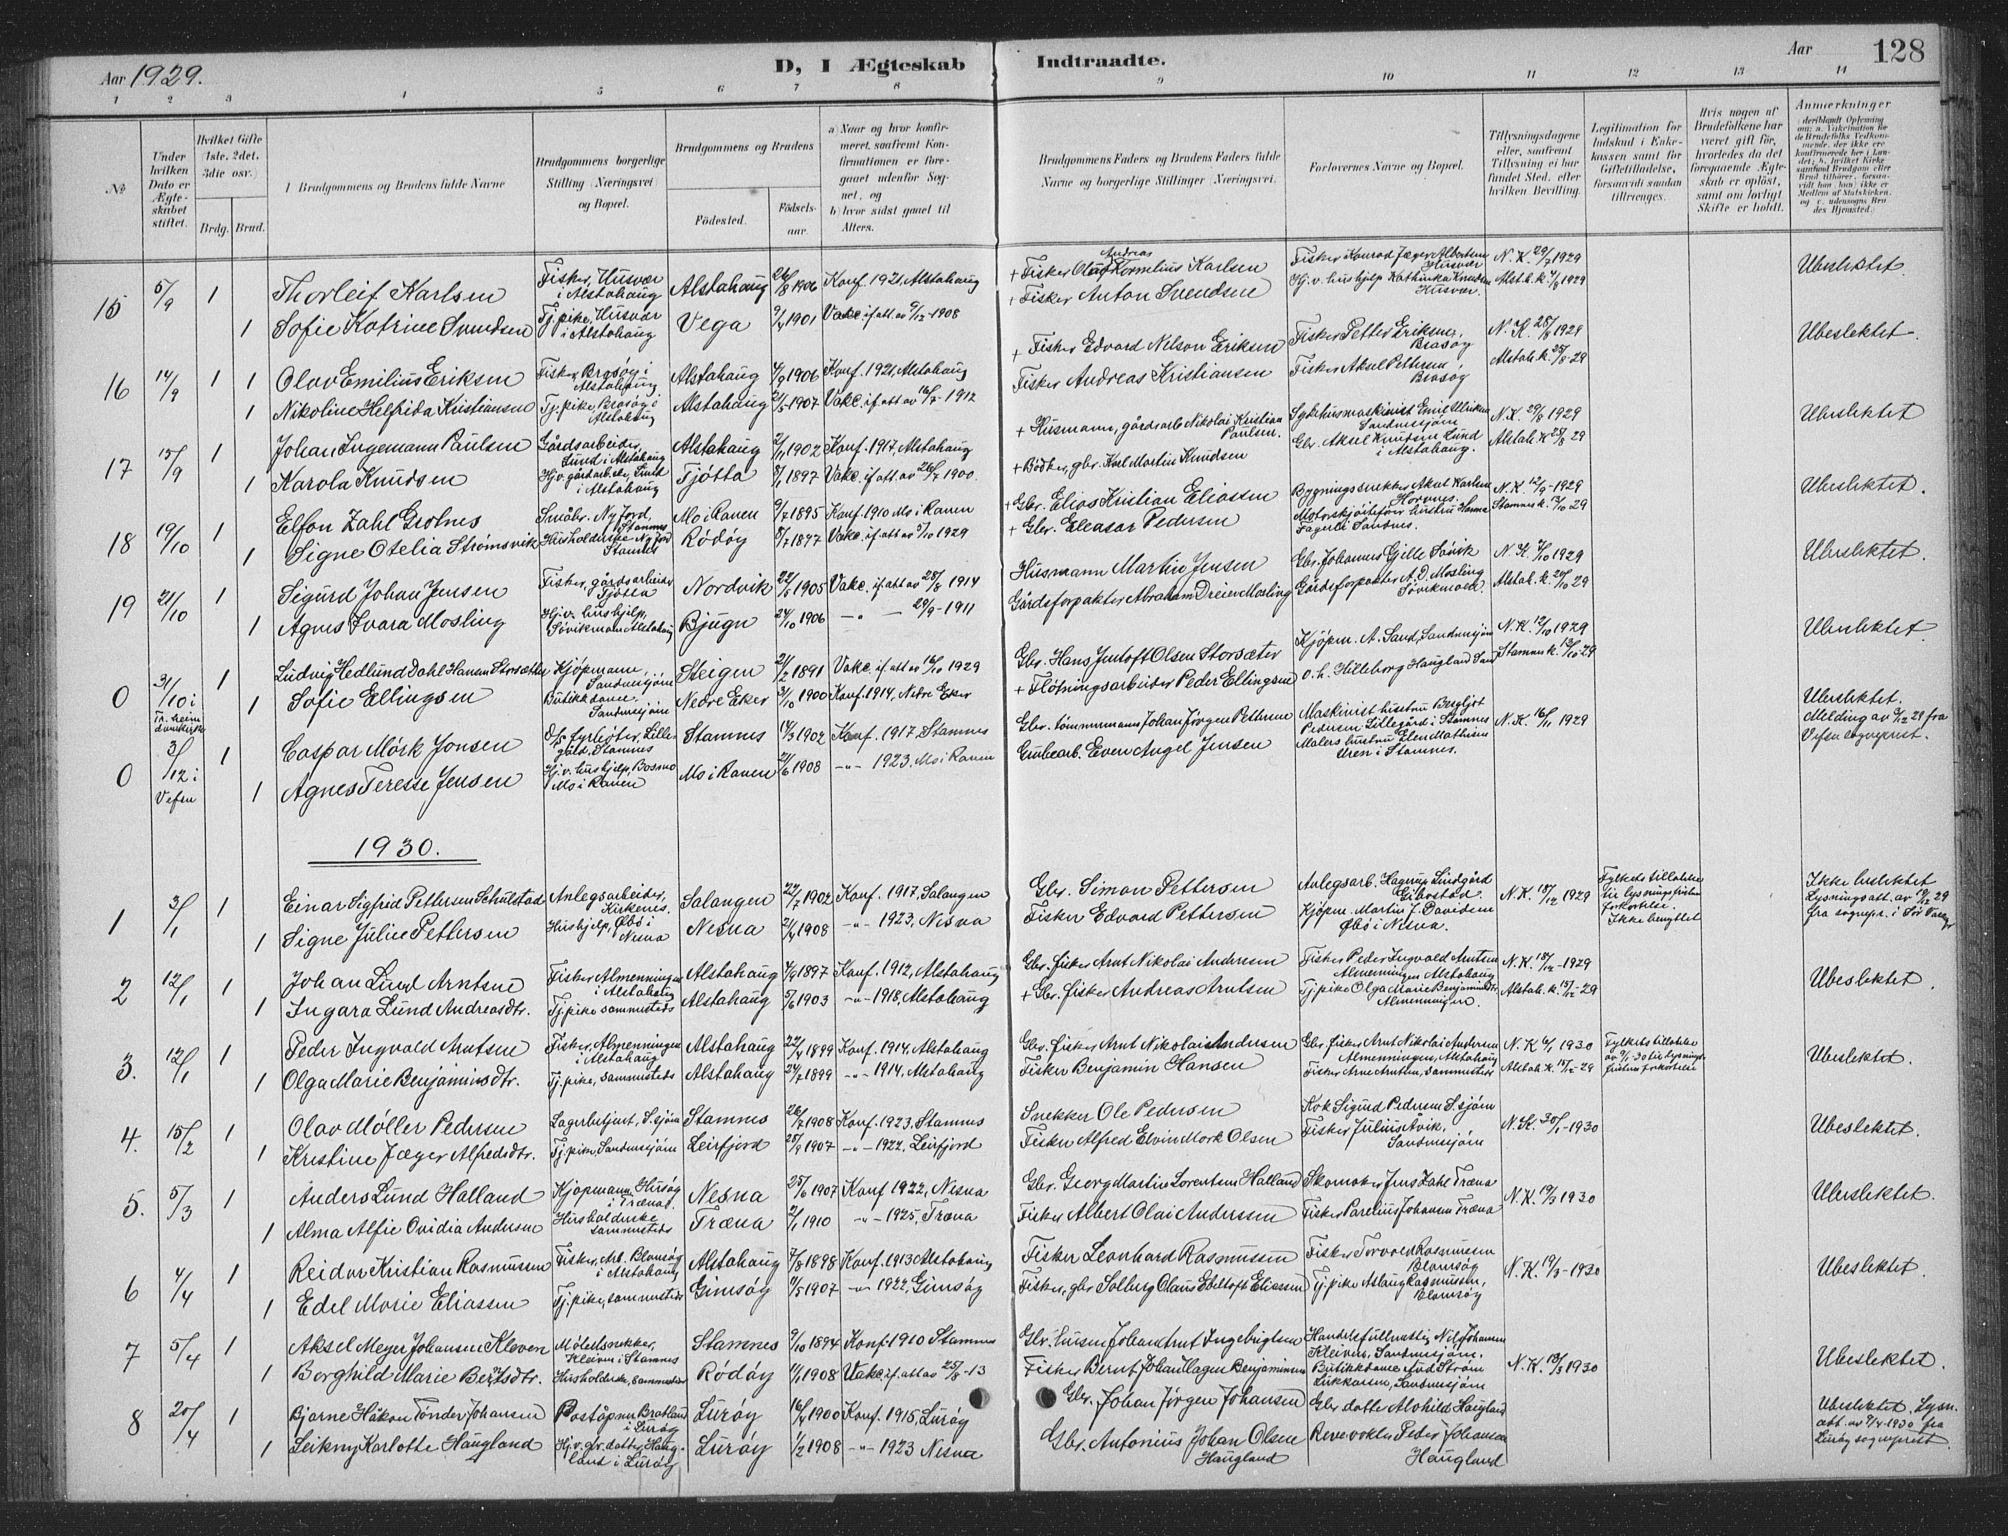 Aar 1929.
D, I Ægteskab Indtraadte.
Aar 128
1 2 3 4 5 6 7 8 9 10 11 12 13 14
No
Under hvilken Dato er Ægteskabet stiftet.
Hvilket Gifte 1ste, 2det, 3die osv.)
Brdg. Brud.
Brudgommens og Brudens fulde Navne
Brudgommens borgerlige Stilling (Næringsvei) og Bopæl.
Brudgommens og Brudens
Födested. Födselsaar.
a) Naar og hvor konfirmeret, saafremt Konfirmationen er foregaaet udenfor Sognet, og
b) hvor sidst gaaet til Alters.
Brudgommens Faders og Brudens Faders fulde Navne og borgerlige Stillinger (Næringsvei).
Forlovernes Navne og Bopæl.
Tillysningsdagene eller, saafremt Tillysning ei har fundet Sted, efter hvilken Bevilling.
Legitimation for Indskud i Enkekassen samt for Giftetilladelse, forsaavidt saadan tiltrænges.
Hvis nogen af Brudefolkene har været gift för, hvorledes da det foregaaende Ægteskab er oplöst, samt om lovligt Skifte er holdt.
Anmærkninger
15 5/9 1 Thorleif Karlsen Fisker, Husvær i Alstahaug Alstahaug 26/8 1906 Konf. 1921, Alstahaug + Fisker Olaus Andreas Kornelius Karlsen Fisker Konrad Jæger Albertsen Husvær N.K. 29/8 1929 Ubeslektet
1 Sofie Katrine Svendsen Tj.pike, Husvær i Alstahaug Vega 9/4 1901 Vakc. if. att. av 9/12 - 1908 + Fisker Anton Svendsen Hj.v. hushjelp Kathinka Knudsen Husvær.
16 14/9 1 1 Olav Emilius Eriksen Fisker, Brasøy i Alstahaug Alstahaug 4/9 1906 Konf. 1921, Alstahaug + Fisker Edvard Nilson Eriksen Fisker Petter Eriksen, Brasøy N.K. 28/8 1929 Ubeslektet
1 Nikoline Helfrida Kristiansen Tj.pike, Brasøy i Alstahaug Alstahaug 21/5 1907 Vakc. if. att. av 16/7 - 1912 Fisker Andreas Kristiansen Fisker Aksel Pettersen, Brasøy Alstah. k. 25/8-29
17 15/9 1 Johan Ingemann Paulsen Gårdsarbeider, Lund i Alstahaug Alstahaug 2/11 1902 Konf. 1917, Alstahaug + Husmann, gårdsarb. Nikolai Kristian Paulsen. Sykehusmaskinist Emil Ulriksen Sandnessjøen N.K. 29/8 1929 Ubeslektet
1 Karola Knudsen Hj.v. gårdarbeide, Lund i Alstahaug Tjøtta 8/1 1897 Vakc. if. att. av 26/7 1900. + Bødker, gbr. Karl Martin Knudsen Gbr. Aksel Knutsen Lund i Alstahaug. Alstah. k. 25/8 29
18 19/10 1 Elfon Zahl Grotnes Småbr. Nyjord, Stamnes Mo i Ranen 9/7 1895 Konf. 1910 Mo i Ranen + Gbr. Elias Kristian Eliassen Bygningssnekker Aksel Karlsen Horvnes N.K. 12/9 - 1929 Ubeslektet.
1 Signe Otelia Strømsvik Husholderske Nyjord Stamnes Rödöy 8/7 1877 Vakc. if. att. av 5/10 1929 + Gbr. Eleasar Pedersen Stamnes k. 13/10 29
19 21/10 1 Sigurd Johan Jensen Fisker, gårdsarbeider Tjötta Nordvik 22/5 1905 Vakc. if att av 28/8 1914 Husmann Martin Jensen Gbr. Johannes Gjelle Søvik N.K. 7/10 1929 Ubeslektet.
1 Agnes Svara Mosling Hj.v. hushjelp, Søvikmoen Alstahaug Bjugn 24/10 1906 -"- 29/9 - 1911 Gårdsforpakter Abraham Dreier Mosling Gårdsforpakter A. D. Mosling Søvikmoen Alstah. k. 20/10 29
0 31/10 i Tr.heim domkirke 1 Ludvig Hedlund Dahl Hansen Storsæter Kjøpmann, Sandnessjøen Steigen 21/2 1891 Vakc. if att av 16/10 1929 Gbr. Hans Jentoft Olsen Storsæter Kjøpm. A. Sand, Sandnessjøen N.K. 12/10 1929 Ubeslektet.
1 Sofie Ellingsen Butikkdame, Sandnessjøen Nedre Eker 3/10 1900 Konf. 1914, Nedre Eker + Fløtningsarbeider Peder Ellingsen o. h. Hilleborg Haugland Sand Stamnes k. 13/10-29
0 3/12 i Vefsn 1 Caspar Mörk Jonsen Stamnes 14/3 1902 Konf. 1917, Stamnes Gbr. tömmermann Johan Jörgen Pettersen Maskinist hustru Bergljot Pedersen Lillegård i Stamnes N.K. 16/11 1929 Ubeslektet. Melding av 3/12 29 fra Vefsn sogneprest.
1 Agnes Terese Jensen Hj.v. hushjelp, Bosmo Mo i Ranen Mo i Ranen 21/6 1908 -"- 1923, Mo i Ranen Grubearb. Even Angel Jensen Malers hustru Elen Mathisen Uren i Stamnes.
1930.
1 3/1 1 Einar Sigfrid Pettersen Schulstad Anlegsarbeider, Kirkenes. Salangen 22/7 1902 Konf. 1917, Salangen Gbr. Simon Pettersen Anlegsarb. Hagrup Lindgård Gibostad. N.K. 18/12 1929 Fylkets tillatelse til lysningsfristens forkortelse. Ikke benyttet Ikke beslektet Lysningsatt. av 19/12 29 fra sognepr. i Sör Varanger
1 Signe Julie Pettersen Hushjelp, Øbö i Nesna Nesna 21/4 1908 -"- 1923, Nesna Fisker Edvard Pettersen Kjöpm. Martin J. Davidsen Øbö i Nesna.
2 12/1 1 Johan Lund Arntsen Fisker, Almenningen i Alstahaug Alstahaug 4/9 1897 Konf. 1912, Alstahaug Gbr. fisker Arnt Nikolai Andersen Fisker Peder Ingvald Arntsen Almenningen Alstahaug N.K. 18/12 - 1929 Ubeslektet
1 Ingara Lund Andreasdtr. Tj.pike sammesteds Alstahaug 5/6 1903 -"- 1918, Alstahaug + Gbr. fisker Andreas Arntsen Tj.pike Olga Marie Benjaminsdtr. Almenningen. Alstah. k. 15/12-29
3. 12/1 1 Peder Ingvald Arntsen Fisker, Almenningen i Alstahaug Alstahaug 22/4 1899 Konf. 1914, Alstahaug Gbr. fisker Arnt Nikolai Andersen Gbr. fisker Arnt Nikolai Andersen Almenningen, Alstahaug N.K. 6/1 1930 Fylkets tillatelse av 9/1-30 til lysningsfristens forkortelse Ubeslektet.
1 Olga Marie Benjaminsdtr. Tj.pike, sammesteds Alstahaug 24/2 1899 -"- 1914, Alstahaug Fisker Benjamin Hansen Fisker Arne Arntsen, sammesteds Alstah. k. 15/12-29
4. 15/2 1 Olav Møller Pedersen Lagerbetjent, S.sjöen Stamnes 26/7 1908 Konf. 1923, Stamnes Snekker Ole Pedersen Kok Sigurd Pedersen S.sjöen N.K. 30/1-1930 Ubeslektet.
1 Kristine Jæger Alfredsdtr. Tj.pike, Sandnessjøen Leirfjord 25/9 1907 -"- 1922, Leirfjord Fisker Alfred Elvin Mork Olsen Fisker Julius Åvik, Sandnessjøen
5. 5/3 1 Anders Lund Halland Kjöpmann, Husöy i Træna. Nesna 25/6 1907 Konf 1922, Nesna Gbr. Georg Martin Lorentsen Halland Skomaker Jens Zahl Træna N.K. 19/3 1930 Ubeslektet.
1 Alma Alfie Ovidia Andersen Husholderske sammesteds Træna 2/1 1910 -"- 1925, Træna Fisker Albert Olai Anderssen Fisker Parelius Johansen Træna
6 4/4 1 Reidar Kristian Rasmussen Fisker, Arb. Blomsöy i Alstahaug Alstahaug 7/8 1898 Konf. 1913 Alstahaug Fisker Leonhard Rasmussen Fisker Torvald Rasmussen Blomsöy N.K. 19/3-1930 Ubeslektet.
1 Edel Marie Eliassen Tj.pike, sammesteds Gimsöy 11/5 1907 -"- 1922, Gimsöy Fisker, gbr. Solberg Olaus Ebeltoft Eliassen Tj.pike Aslaug Rasmussen, Blomsöy
7 5/4 1 Aksel Meyer Johansen Kleven Møbelsnekker, Kleiven i Stamnes Stamnes 9/10 1894 Konf. 1910 Stamnes Gbr. husm. Johan Arnt Ingebrigtsen Handelsfullmektig Nils Johansen Kleiven, Sandnessjøen. N.K. 13/3 1930 Ubeslektet.
1 Borghild Marie Berntsdtr. Husholderske, sammesteds Rödöy 11/1 1908 Vakc if att av 25/8 - 13 Fisker Bernt Johan Hagen Benjaminsen Butikkdame Strøm Sandnessjøen
8 20/4 1 Bjarne Håkon Tønder Johansen Poståpner Bratland i Luröy Luröy 16/4 1900 Konf. 1915, Luröy Gbr. Johan Jörgen Johansen Gbr datter Mohild Haugland Ubeslektet. Lysn. att. av 9/4 1930 fra Luröy sogneprest.
1 Leikny Karlotte Haugland Hj.v. gbr. datter, Haugland i Luröy Luröy 1/2 1908 -"- 1923 Nesna Gbr. Antonius Johan Olsen Haugland Revevokter Peder Johansen Haugland